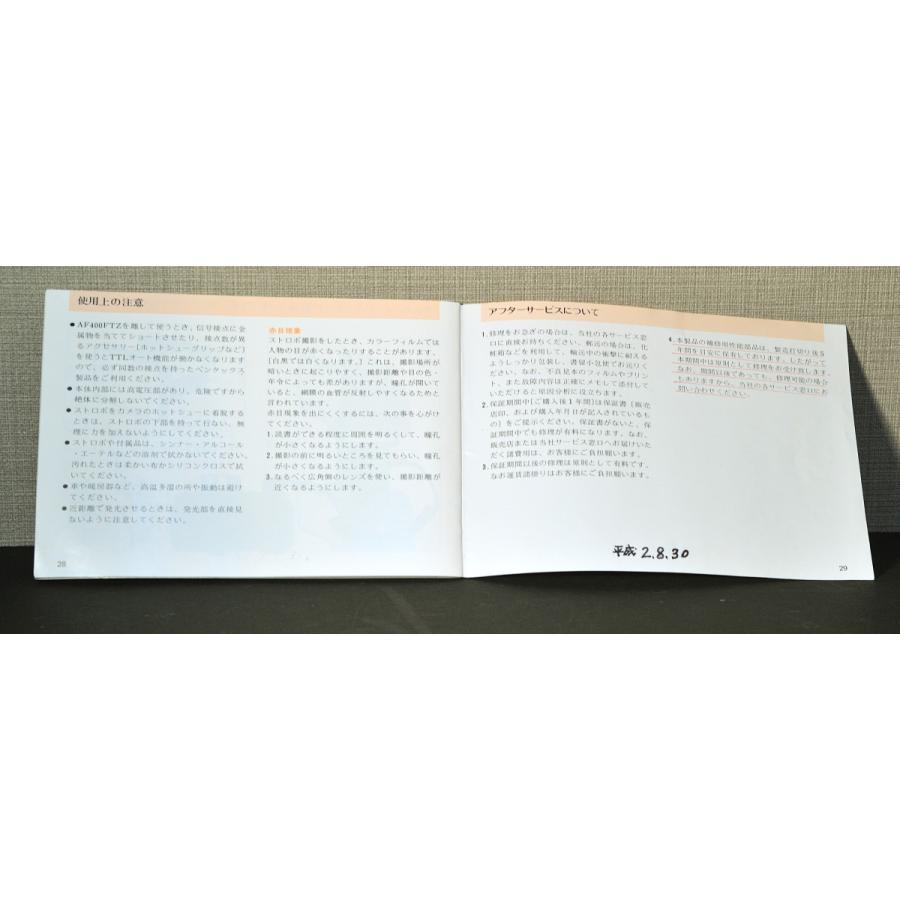 使用上の注意
● AF400FTZを離して使うとき、信号接点に金
属物を当ててショートさせたり、接点数が異
るアクセサリー[ホットシューグリップなど]
を使うとTTLオート機能が働かなくなります
ので、必ず同数の接点を持ったペンタックス
製品をご利用ください。
● 本体内部には高電圧部があり、危険ですから
絶体に分解しないでください。
● ストロボをカメラのホットシューに着脱する
ときは、ストロボの下部を持って行ない、無
理に力を加えないようにしてください。
● ストロボや付属品は、シンナー・アルコール
・エーテルなどの溶剤で拭かないでください。
汚れたときは柔かい布かシリコンクロスで拭
いてください。
● 車や暖房器など、高温多湿の所や振動は避け
てください。
● 近距離で発光させるときは、発光部を直接見
ないように注意してください。
赤目現象
ストロボ撮影をしたとき、カラーフィルムでは
人物の目が赤くなったりすることがあります。
[白黒では白くなります。] これは、撮影場所が
暗いときに起こりやすく、撮影距離や目の色・
年令によっても差がありますが、瞳孔が開いて
いると、網膜の血管が反射しやすくなるためと
言われています。
赤目現象を出にくくするには、次の事を心がけ
てください。
1. 読書ができる程度に周囲を明るくして、瞳孔
が小さくなるようにします。
2. 撮影の前に明るいところを見てもらい、瞳孔
が小さくなるようにします。
3. なるべく広角側のレンズを使い、撮影距離が
近くなるようにします。
28
アフターサービスについて
1. 修理をお急ぎの場合は、当社の各サービス窓
口に直接お持ちください。郵送の場合は、化
粧箱などを利用して、輸送中の衝撃に耐える
ようしっかり包装し、書留小包便でお送りく
ださい。なお、不良見本のフィルムやプリン
ト、また故障内容は正確にメモして添付して
いただけると原因分析に役立ちます。
2. 保証期間中[ご購入後1年間]は保証書[販売
店印、および購入年月日が記入されているも
の]をご提示ください。保証書がないと、保
証期間中でも修理が有料になります。なお、
販売店または当社サービス窓口へお届けいた
だく諸費用は、お客様にご負担願います。
3. 保証期間以後の修理は原則として有料です。
なお運賃諸掛りはお客様にご負担願います。
4. 本製品の補修用性能部品は、製造打切り後5
年間を目安に保有しております。したがって
本期間中は原則として修理をお受け致します。
なお、期間以後であっても、修理可能の場合
もありますから、当社の各サービス窓口にお
問い合わせください。
平成 2.8.30
29